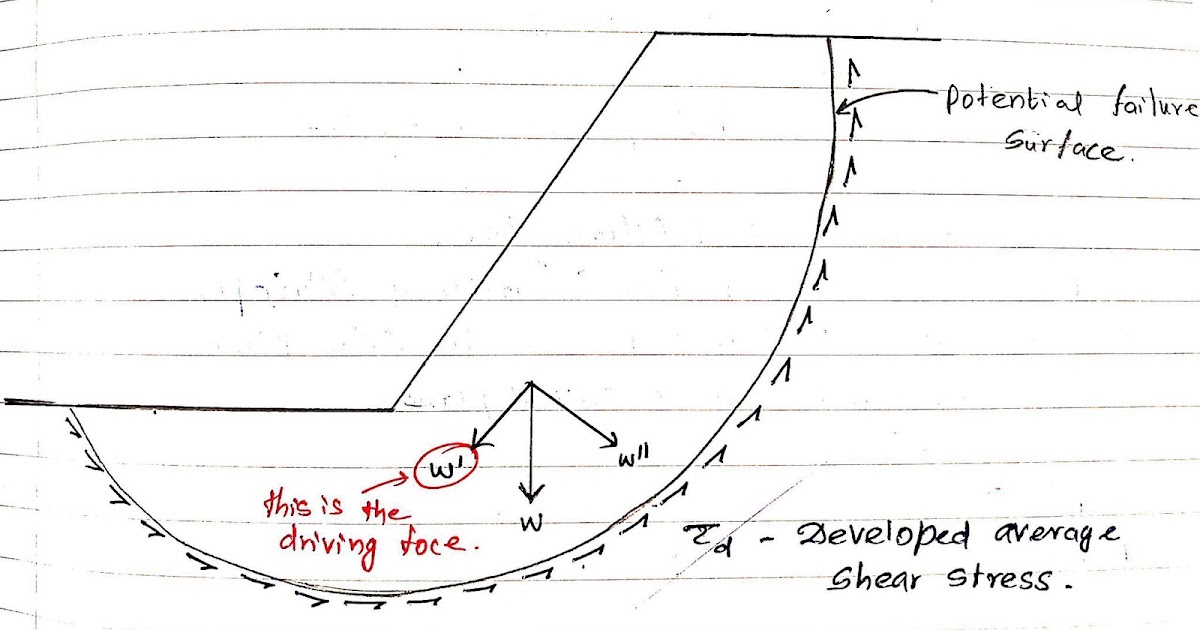 Potential failure
surface.
W'
W''
W
this is the
driving foce.
τd - Developed average
shear stress.